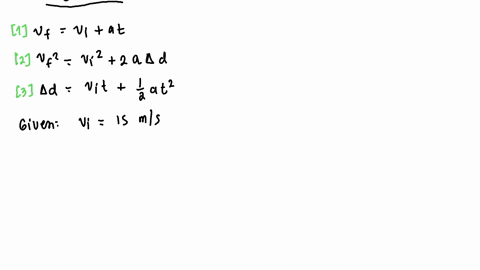 [1] v_f = v_i + at
[2] v_f² = v_i² + 2aΔd
[3] Δd = v_i t + 1/2 at²
Given: v_i = 15 m/s